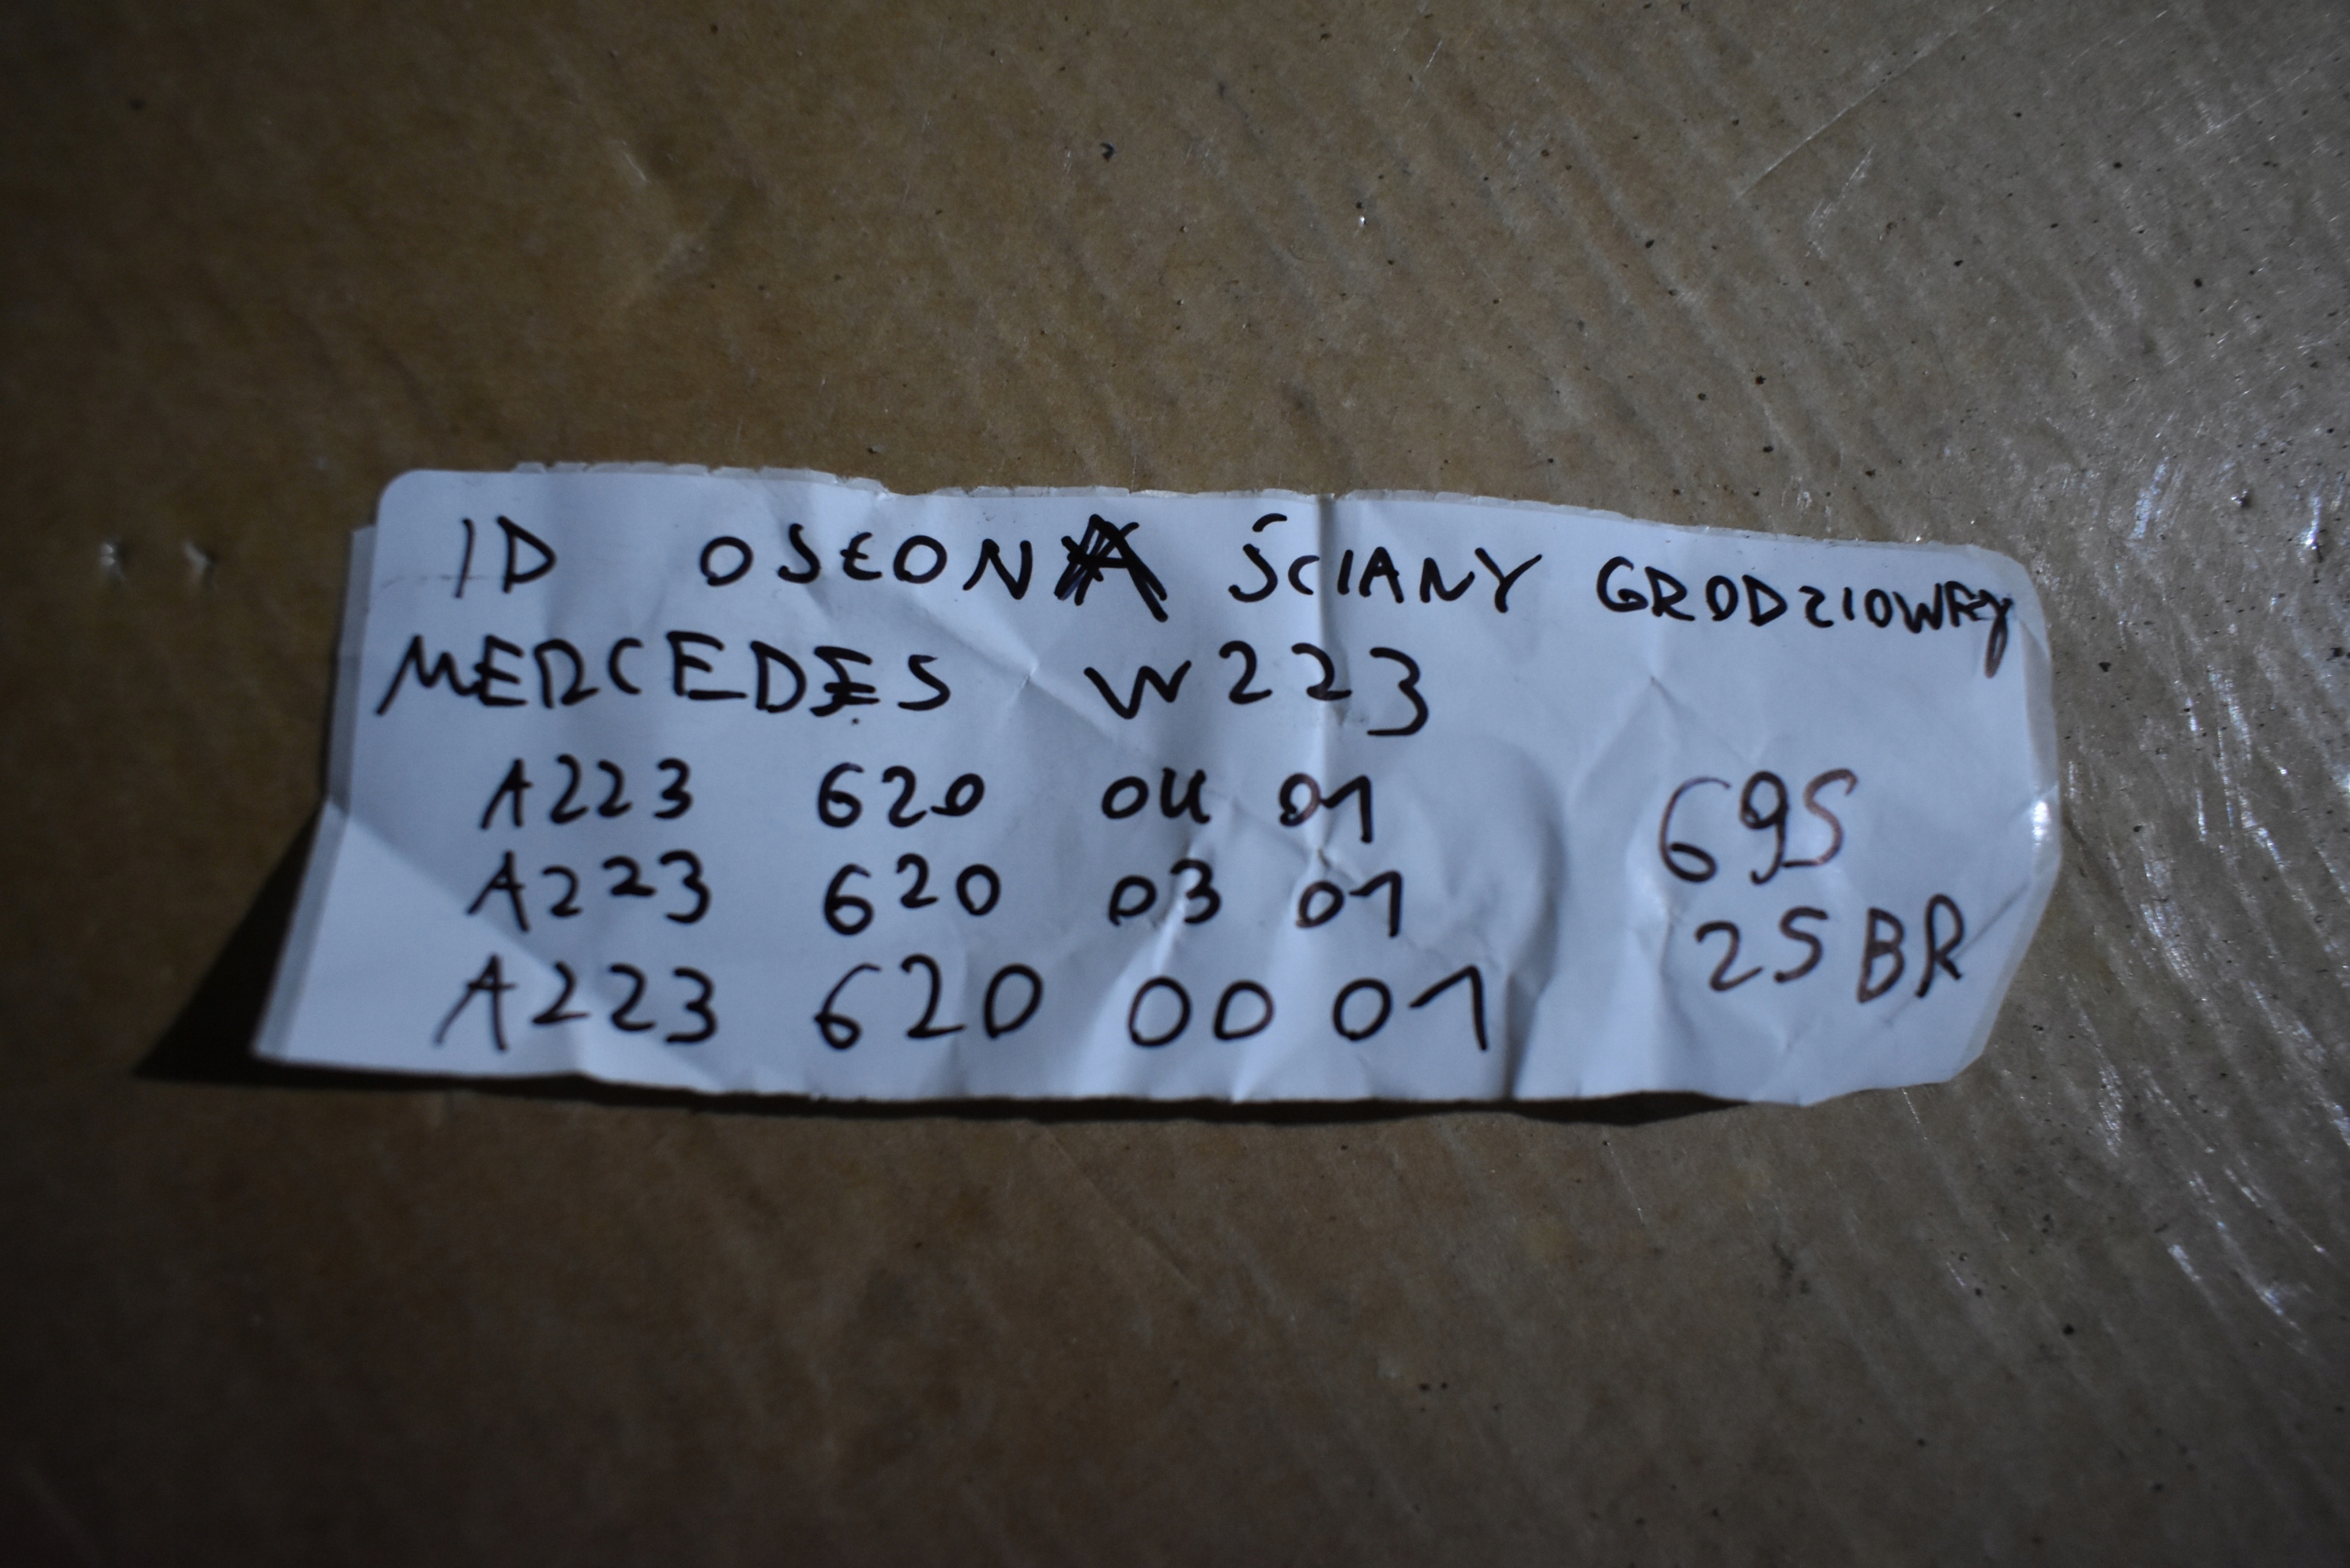 ID OSŁONA ŚCIANY GRODZIOWEJ
MERCEDES W223
A223 620 04 01
A223 620 03 01
A223 620 00 01
695
25BR